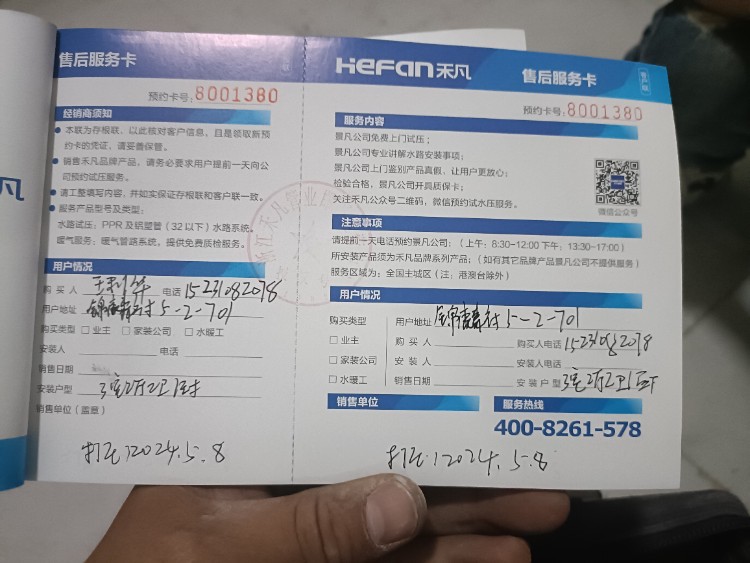 售后服务卡
预约卡号:8001380
经销商须知
本联为存根联，以此核对客户信息，且是领取新预
约卡的凭证，请妥善保管。
销售禾凡品牌产品，请务必要求用户提前一天向公
司预约试压服务。
请工整填写内容，并如实保证存根联和客户联一致。
服务产品型号及类型:
水路试压: PPR及铝塑管（32以下）水路系统。
暖气服务: 暖气管路系统，提供免费质检服务。
用户情况
购买人 王利华 电话 15231082078
用户地址 5-2-701
购买类型 □业主 □家装公司 □水暖工
安装人 电话
销售日期
安装户型 3室2厅2卫1厨
销售单位（盖章）
打压:2024.5.8
凡
HeFan禾凡
售后服务卡
客户联
预约卡号:8001380
服务内容
景凡公司免费上门试压；
景凡公司专业讲解水路安装事项；
景凡公司上门鉴别产品真假，让用户更放心；
检验合格，景凡公司开具质保卡；
关注禾凡公众号二维码，微信预约试水压服务。
微信公众号
注意事项
请提前一天电话预约景凡公司:（上午: 8:30-12:00 下午: 13:30-17:00）
所安装产品须为禾凡品牌系列产品；（如有其它品牌产品景凡公司不提供服务）
服务区域为: 全国主城区（注: 港澳台除外）
用户情况
购买类型 用户地址 5-2-701
□业主 购买人 购买人电话 15231082078
□家装公司 安装人 安装人电话
□水暖工 销售日期 安装户型 3室2厅2卫
销售单位
服务热线
400-8261-578
打压:2024.5.8